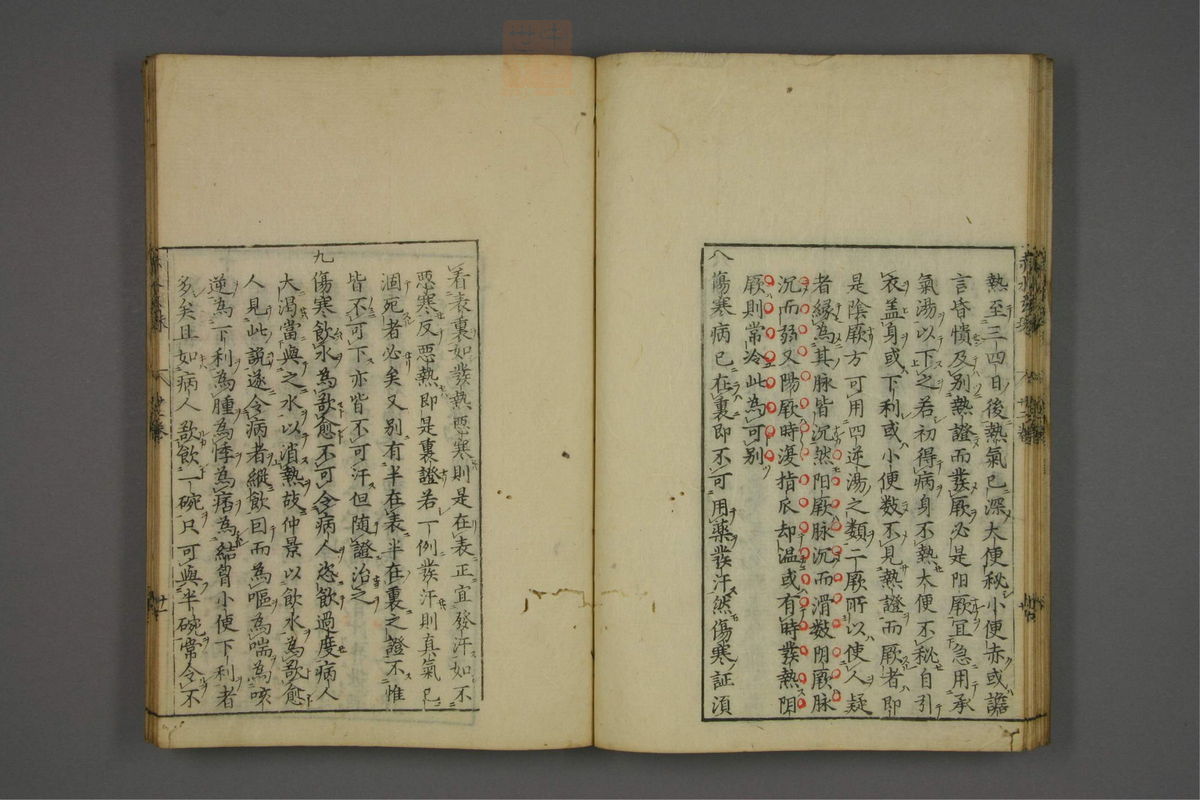 熱至三四日後熱氣已深大便秘小便赤或譫
言昏憒及別熱證而發厥必是阳厥冝急用承
氣湯以下之若初得病身不熱大便不秘自引
衣盖身或下利或小便数不見熱證而厥者即
是陰厥方可用四逆湯之類二厥所以使人疑
者緣為其脉皆沉然阳厥脉沉而滑数阴厥脉
沉而弱又陽厥時復指爪却温或有時發熱阴
厥則常冷此為可别
八 傷寒病已在裏即不可用藥發汗然傷寒証湏
看表裏如發熱惡寒則是在表正宜發汗如不
惡寒反惡熱即是裏證若一例發汗則真氣已
涸死者必矣又别有半在表半在裏之證不惟
皆不可下亦皆不可汗但随證治之
九 傷寒飲水為欲愈不可令病人恣飲過度病人
大渴當與之水以消熱故仲景以飲水為欲愈
人見此說遂令病者縱飲因而為嘔為喘為咳
逆為下利為腫為悸為痞為結胷小便下利者
多矣且如病人欲飲一碗只可與半碗常令不